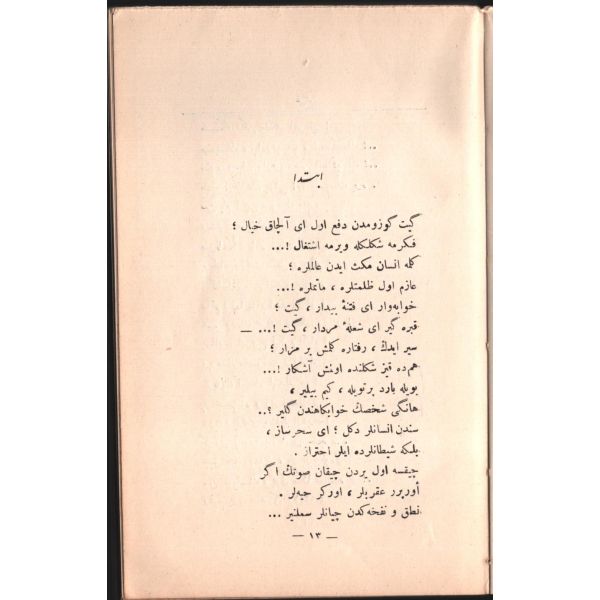 ابتدا
گیت گوزومدن دفع اول ای آلچاق خیال ؛
فکرمه شکلکله ویرمه اشتغال !...
کله انسان مکث ایدن عالملره ؛
عازم اول ظلمتلره ، ماتملره !...
خوابه‌وار ای فتنهٔ بیدار ، گیت ؛
قبره گیر ای شعلهٔ مردار ، گیت !... —
سیر ایدك ، رفتاره کلمش بر مزار ؛
هم‌ده قیز شکلنده اونمش آشکار !...
بویله بارد پرتویله ، کیم بیلیر ،
هانگی شخصك خوابکاهندن گلیر ؟..
سندن انسانلر دکل ؛ ای سحرساز ،
بلکه شیطانلرده ایلر احتراز .
چیقسه اول یردن چیقان صوتك اگر
أورپرر عقربلر ، اورکر حیه‌لر .
نطق و نفخه‌کدن چیانلر سملنیر ...
— ١٣ —